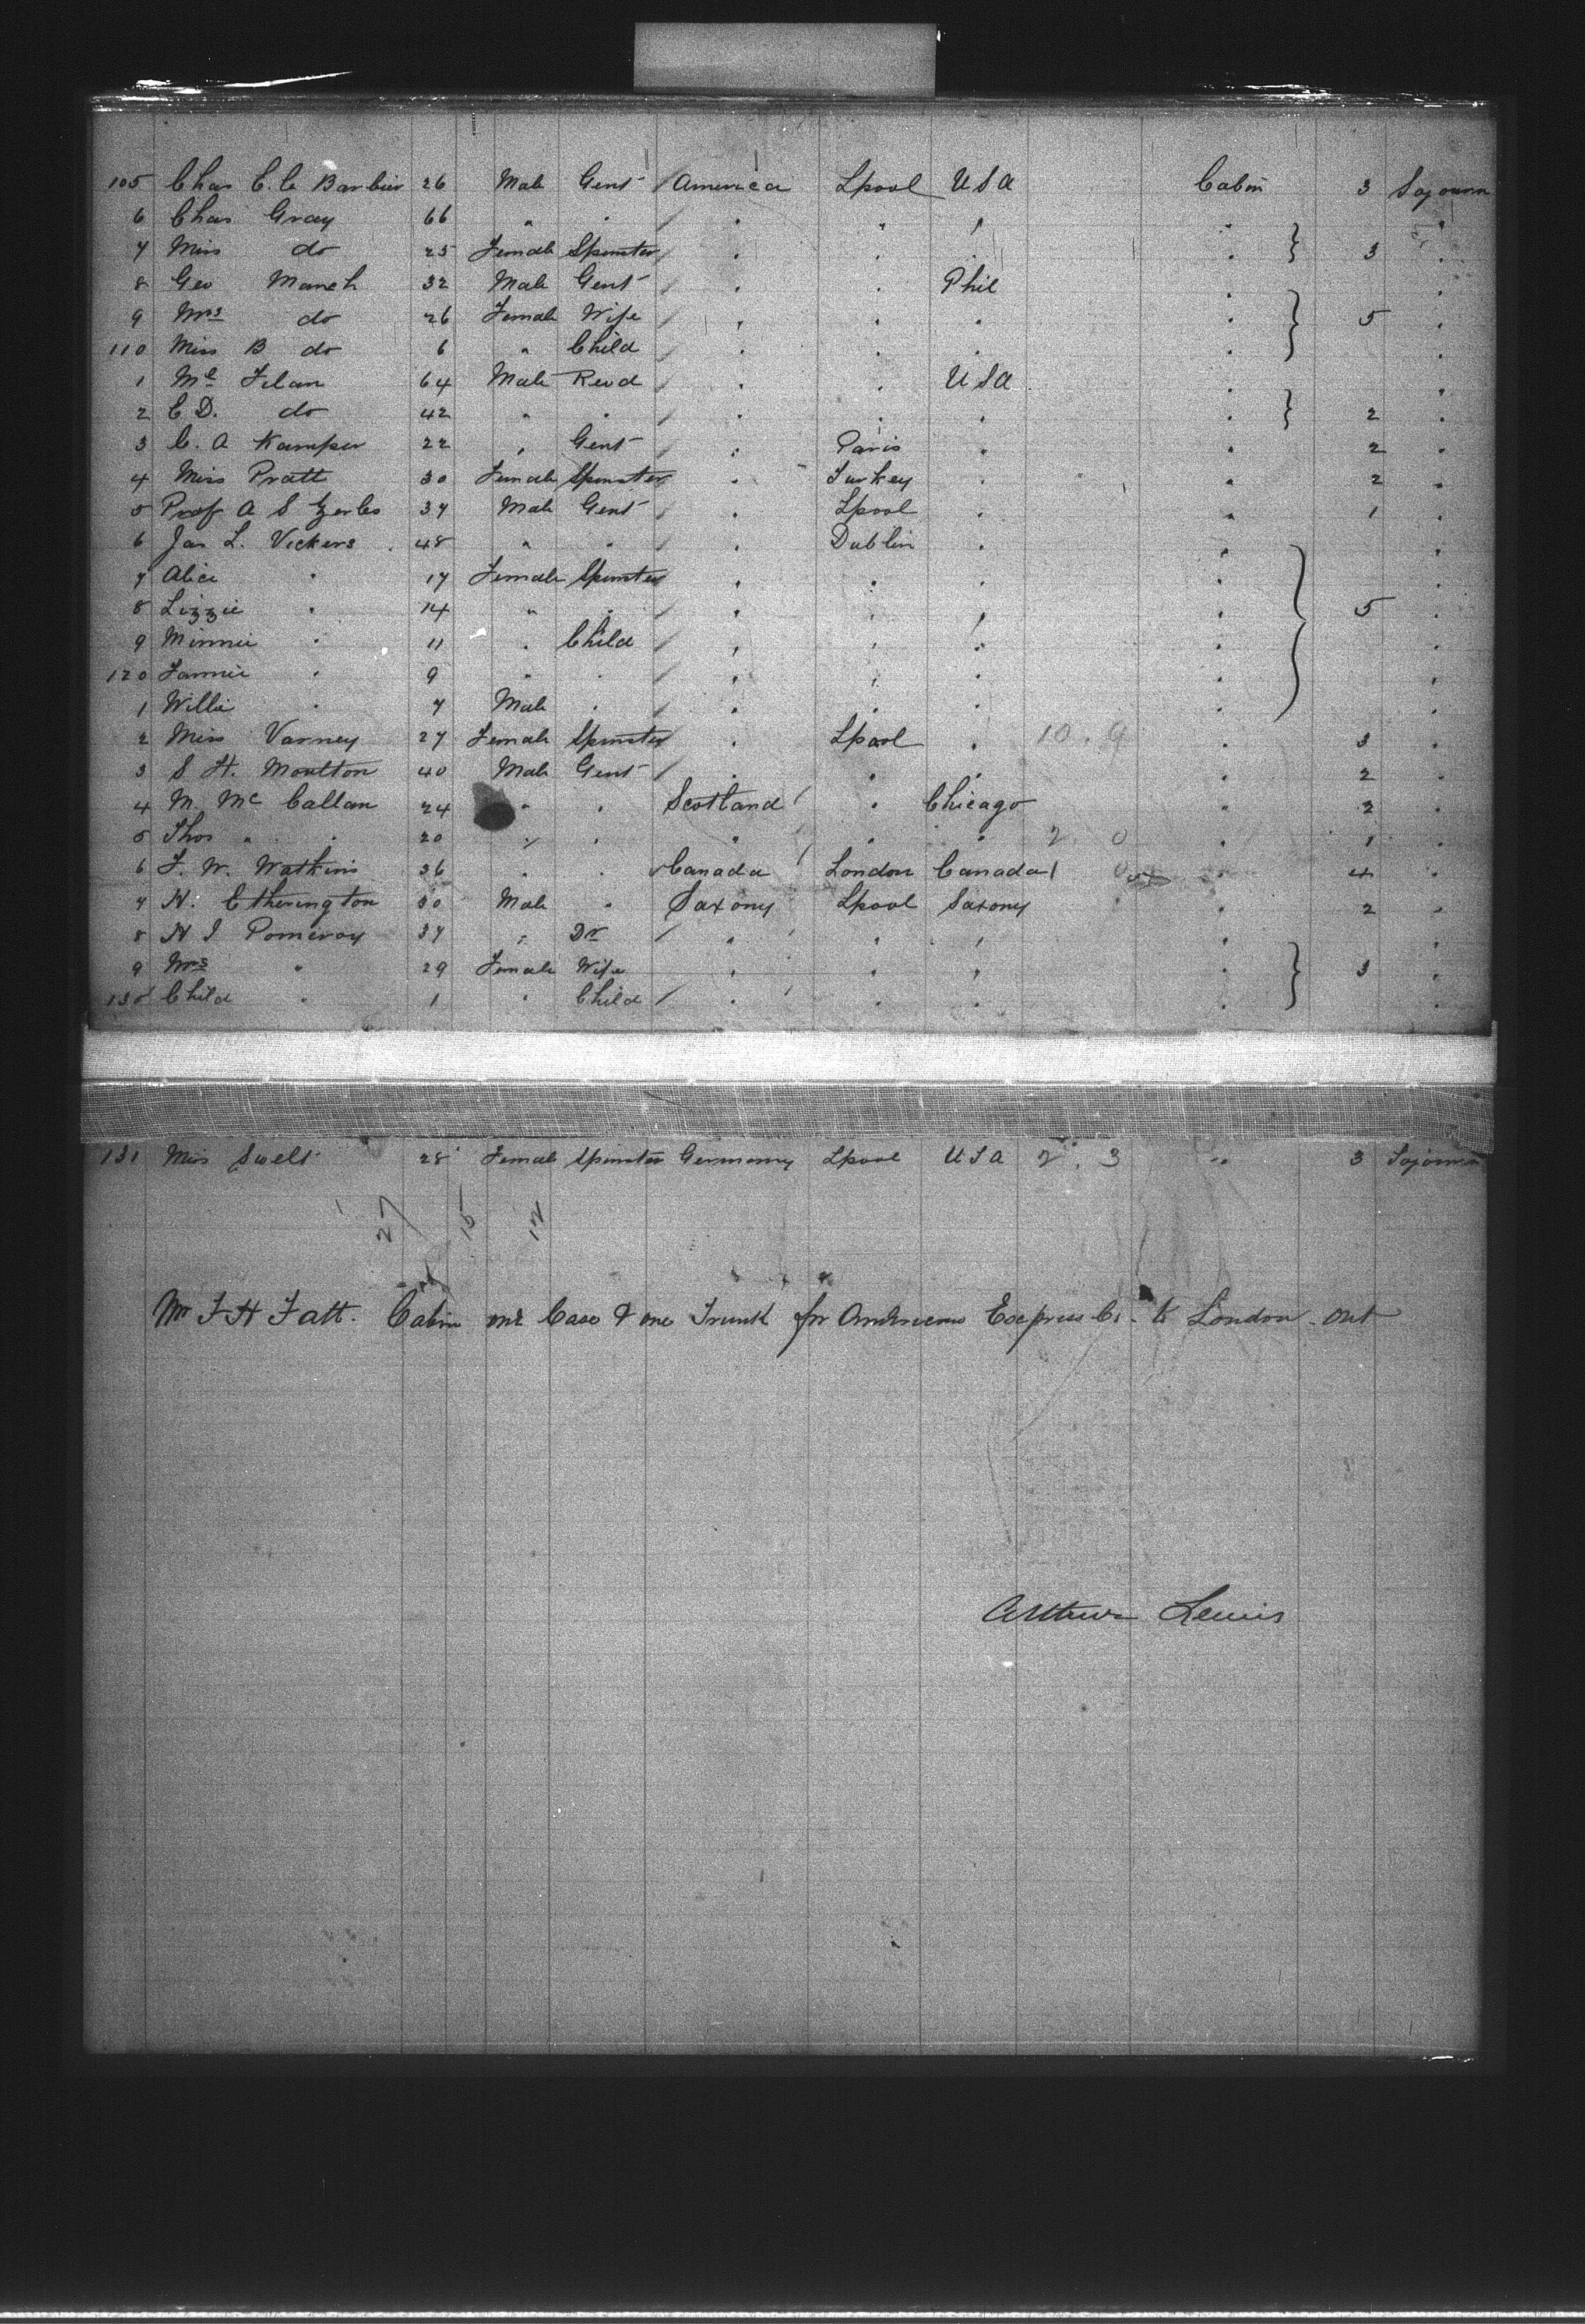 105 Chas C. C Barbier 26 Male Gent America Lpool USA Cabin 3 Sojourn
6 Chas Gray 66 " " " " " " "
7 Miss do 25 Female Spinster " " " " 3 "
8 Geo March 32 Male Gent " " Phil " "
9 Mrs do 26 Female Wife " " " " 5 "
110 Miss B do 6 " Child " " " " "
1 Mr Filan 64 Male Revd " " USA " "
2 C D. do 42 " " " " " " 2 "
3 C. A Kamper 22 " Gent " Paris " " 2 "
4 Miss Pratt 30 Female Spinster " Turkey " " 2 "
5 Prof A S 37 Male Gent " Lpool " " 1 "
6 Jas L. Vickers 48 " " " Dublin " " "
7 Alice " 17 Female Spinster " " " " "
8 Lizzie " 14 " " " " " " 5 "
9 Minnie " 11 " Child " " " " "
120 Fannie " 9 " " " " " " "
1 Willie " 7 Male " " " " " "
2 Miss Varney 27 Female Spinster " Lpool " 10. 9 " 3 "
3 S H. Moulton 40 Male Gent " " " " 2 "
4 M. Mc Callan 24 " " Scotland " Chicago " 2 "
5 Thos " " 20 " " " " " 2 0 " 1 "
6 F. W. Watkins 36 " " Canada London Canada 1 0 " 4 "
7 H. Etherington 30 Male " Saxony Lpool Saxony " 2 "
8 H J Pomeroy 37 " Dr " " " " "
9 Mrs " 29 Female Wife " " " " 3 "
130 Child " 1 " Child " " " " "
131 Miss Swett 28 Female Spinster Germany Lpool USA 2. 3 " 3 Sojourn
27 15 12
Mr F H Fatt. Cabin one Case & one Trunk for American Express Co. to London. out
Arthur Lewis